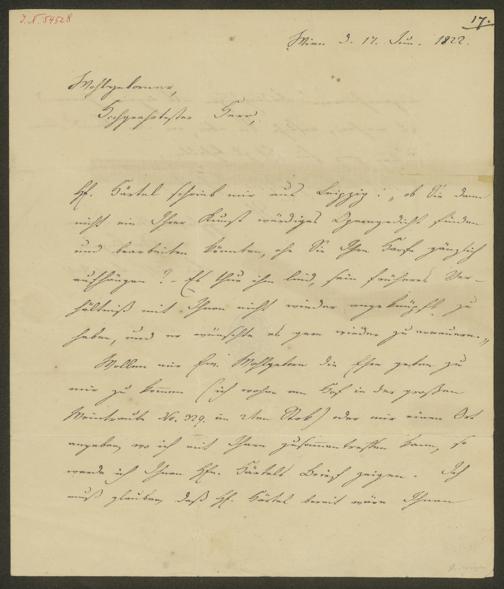 J.N. 54528
17.
Wien d. 17. Jun. 1822.
Wohlgeborner,
Hochgeehrtester Herr,
Hr. Härtel schrieb mir aus Leipzig: „ob Sie denn
nicht ein Ihrer Kunst würdiges Operngedicht finden
und bearbeiten könnten, ehe Sie Ihre Harfe gänzlich
aufhängen? – Es thue ihm leid, sein früheres Ver-
hältniß mit Ihnen nicht wieder angeknüpft zu
haben, und er wünschte es gern wieder zu erneuern."
Wollen mir Ew. Wohlgeboren die Ehre geben, zu
mir zu kommen (ich wohne am Hof in der großen
Weintraube No. 329. im 2ten Stock) oder mir einen Ort
angeben, wo ich mit Ihnen zusammentreffen kann, so
werde ich Ihnen Hrn. Härtels Brief zeigen. Ich
muß glauben, daß Hr. Härtel bereit wäre Ihnen